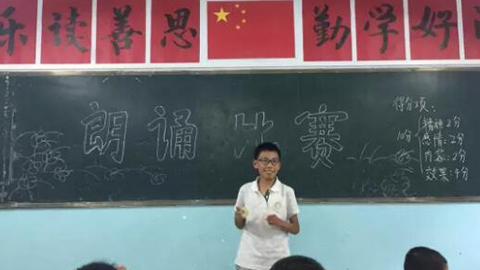 乐读善思 勤学好
朗诵比赛
得分项:
10分
精神2分
感情:2分
内容:2分
效果:4分